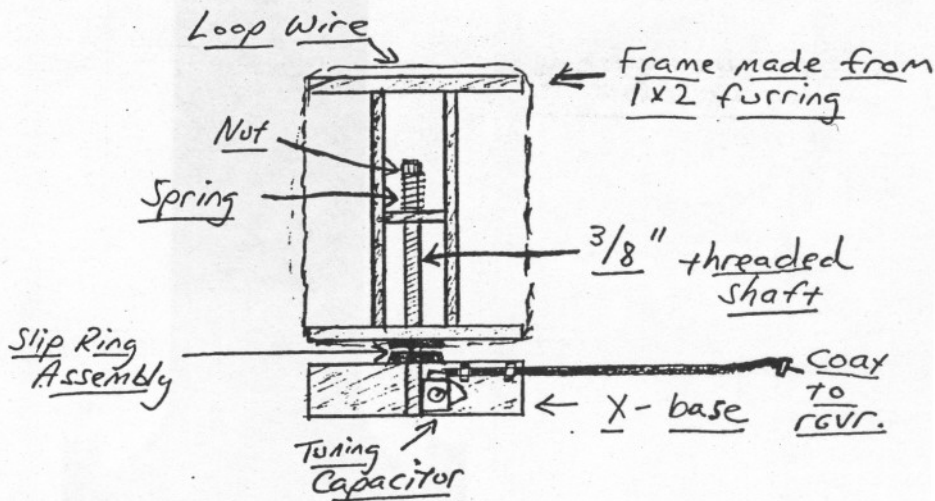 Loop Wire
Frame made from
1x2 furring
Nut
Spring
3/8" threaded
shaft
Slip Ring
Assembly
Coax
to
rcvr.
X-base
Tuning
Capacitor